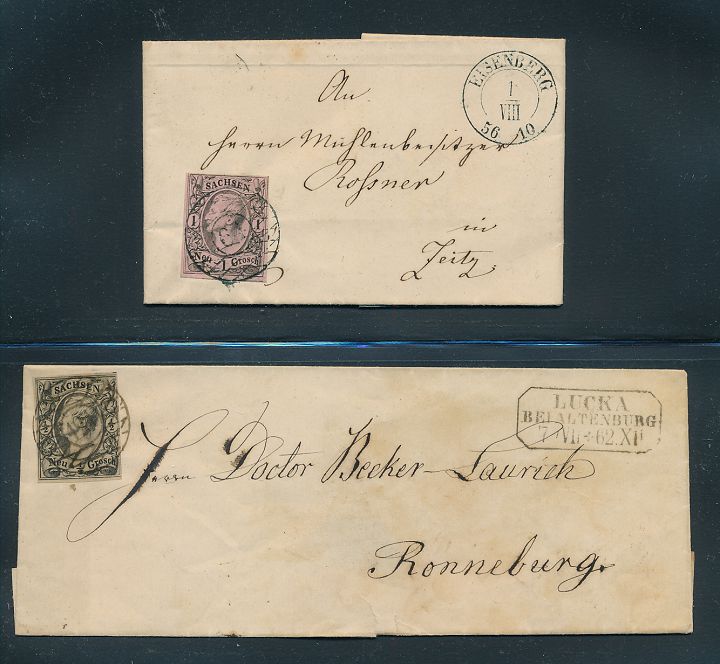 EISENBERG
1
VIII
56 10
An
Herrn Mühlenbesitzer
Rossner
in
Zeitz.
SACHSEN
1 1
Neu 1 Grosch
SACHSEN
Neu Grosch
LUCKA
BEI ALTENBURG
62.XI
Herrn Doctor Becker-Laurich
Ronneburg.